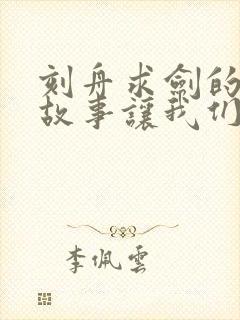 刻舟求劍的
故事讓我们
李佩雲